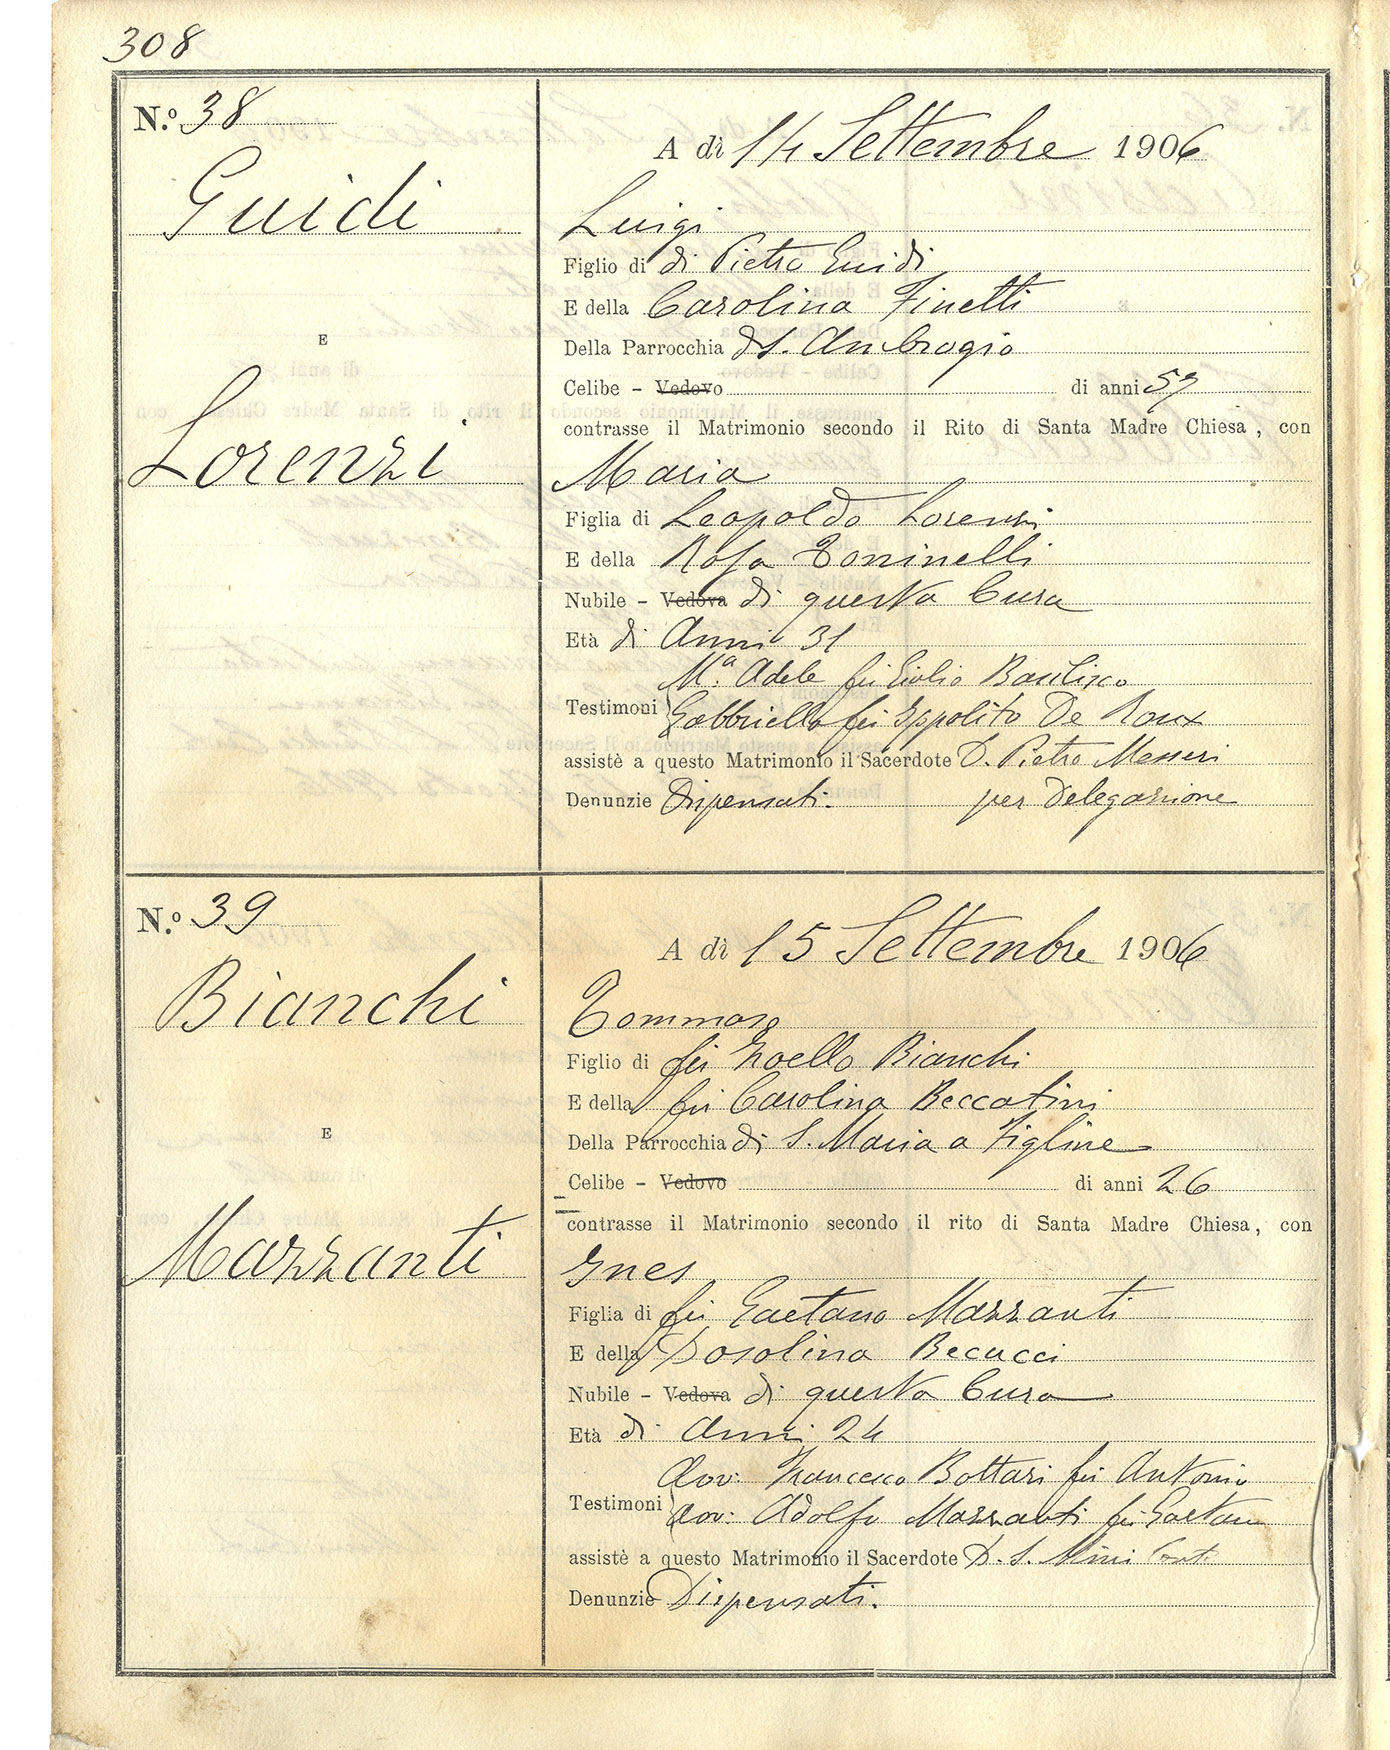 308
N.º 38
A dì 14 Settembre 1906
Guidi
Luigi
Figlio di di Pietro Guidi
E della Carolina Finetti
E
Della Parrocchia di S. Ambrogio
Celibe - Vedovo di anni 59
contrasse il Matrimonio secondo il Rito di Santa Madre Chiesa, con
Lorenzi
Maria
Figlia di Leopoldo Lorenzi
E della Rosa Toninelli
Nubile - Vedova di questa Cura
Età di Anni 31
M.ª Adele fu Giulio Basilisco
Testimoni Gabbriello fu Ippolito De Roux
assistè a questo Matrimonio il Sacerdote D. Pietro Masseri
Denunzie Dispensati. per Delegazione
N.º 39
A dì 15 Settembre 1906
Bianchi
Tommaso
Figlio di fu Noello Bianchi
E della fu Carolina Beccatini
E
Della Parrocchia di S. Maria a Figline
Celibe - Vedovo di anni 26
contrasse il Matrimonio secondo il rito di Santa Madre Chiesa, con
Mazzanti
Ynes
Figlia di fu Gaetano Mazzanti
E della Dosolina Becucci
Nubile - Vedova di questa Cura
Età di Anni 24
Avv: Francesco Bottari fu Antonio
Testimoni Avv: Adolfo Mazzanti fu Gaetano
assistè a questo Matrimonio il Sacerdote D. S. Mini
Denunzie Dispensati.